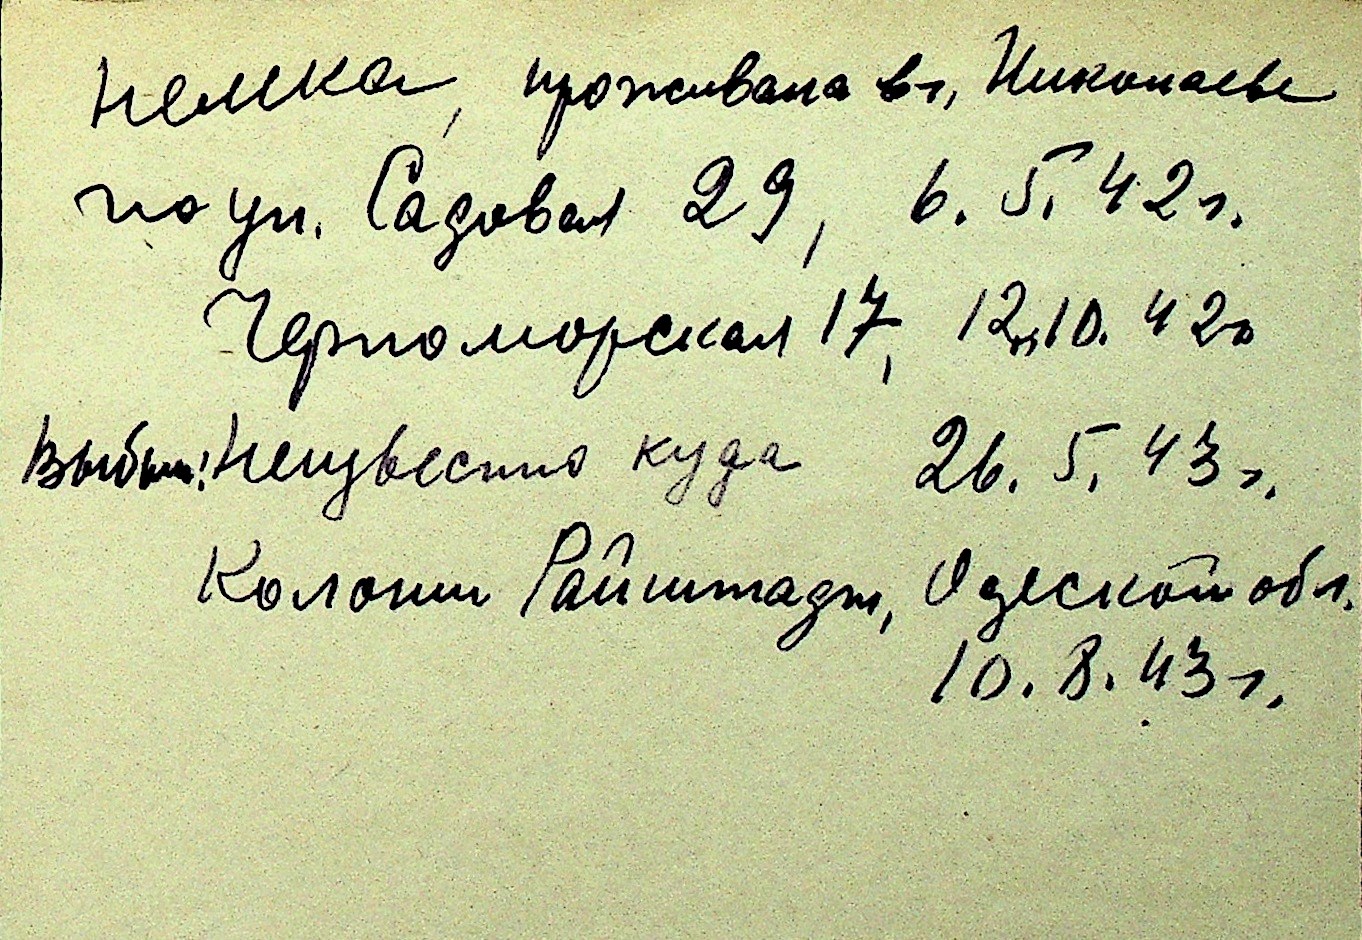 немка, проживала в г. Николаеве
по ул. Садовая 29, 6.5.42 г.
Черноморская 17, 12.10.42г
Выбыл: Неизвестно куда 26.5.43 г.
Колонии Райштадт, Одеской обл.
10.8.43 г.